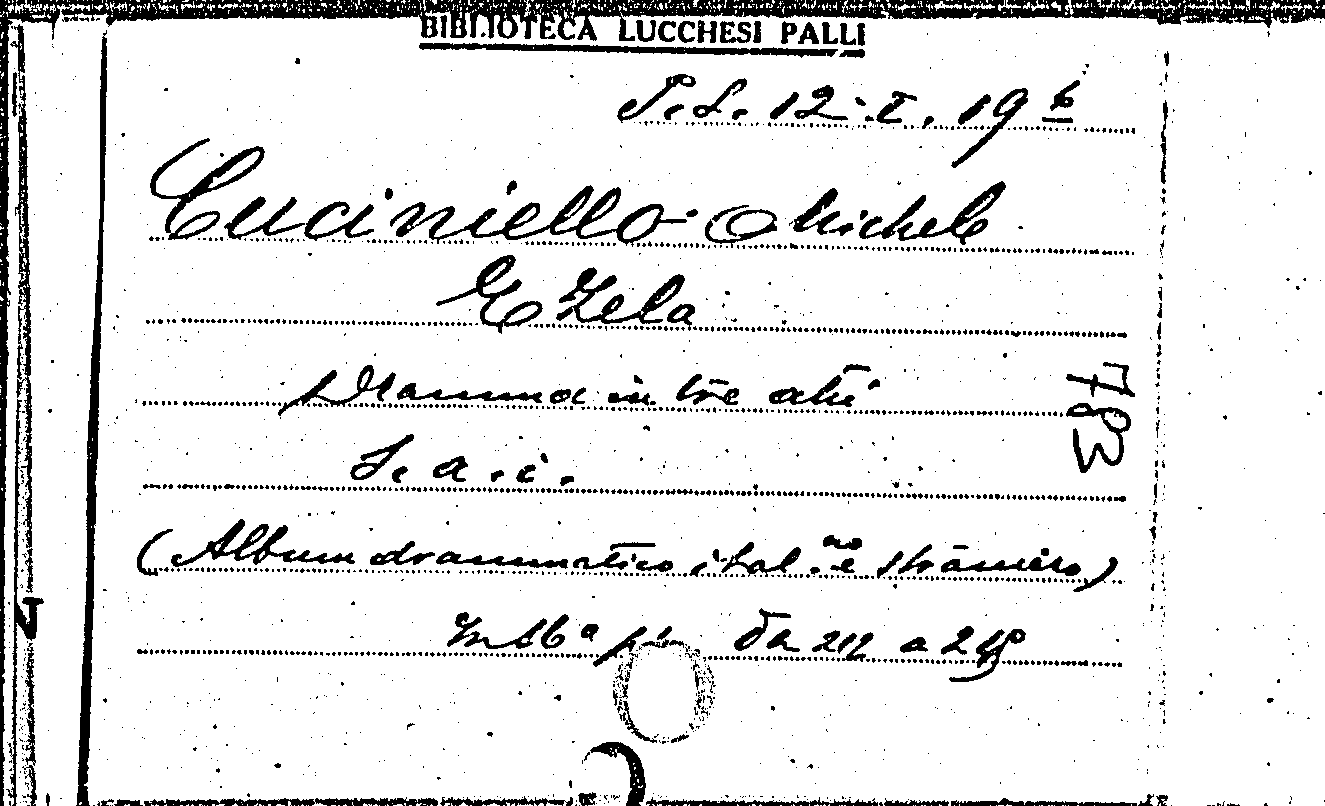 BIBLIOTECA LUCCHESI PALLI
P.S. 12.I.19 6
Cuciniello Michele
Ezela
Dramma in tre atti
S.a.i.
(Album drammatico ital.no e straniero)
In 16ª da 212 a